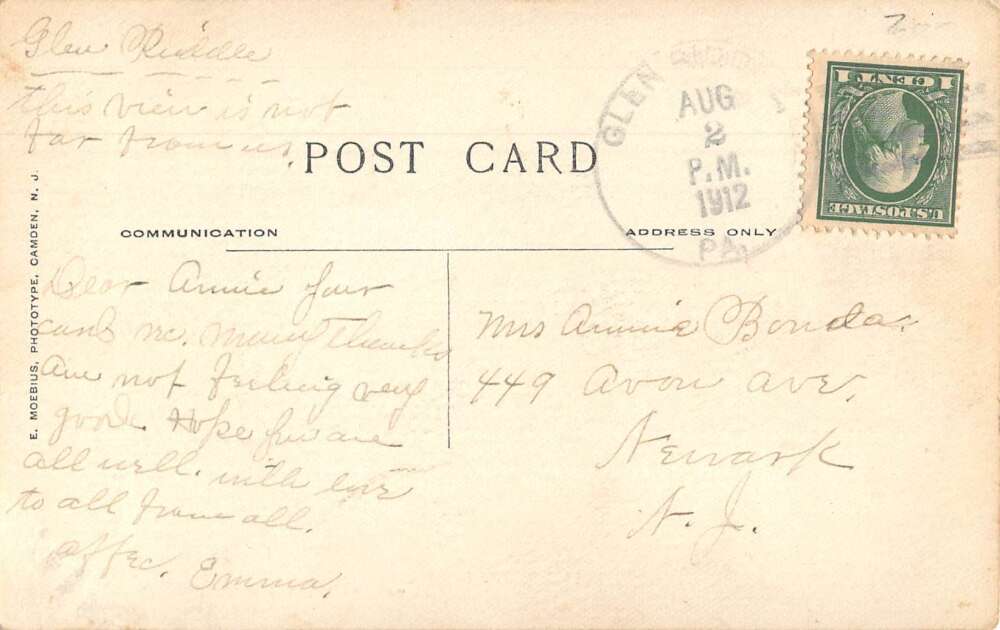 Glen Riddle
this view is not
far from us.
POST CARD
COMMUNICATION
ADDRESS ONLY
E. MOEBIUS, PHOTOTYPE, CAMDEN, N. J.
GLEN
AUG
2
P.M.
1912
PA.
1 CENT 1
U.S. POSTAGE
Dear Annie your
card rec. many thanks
Am not feeling very
good. Hope you are
all well. with love
to all from all.
affec. Emma.
Mrs Annie Bonda.
449 Avon ave.
Newark
N. J.